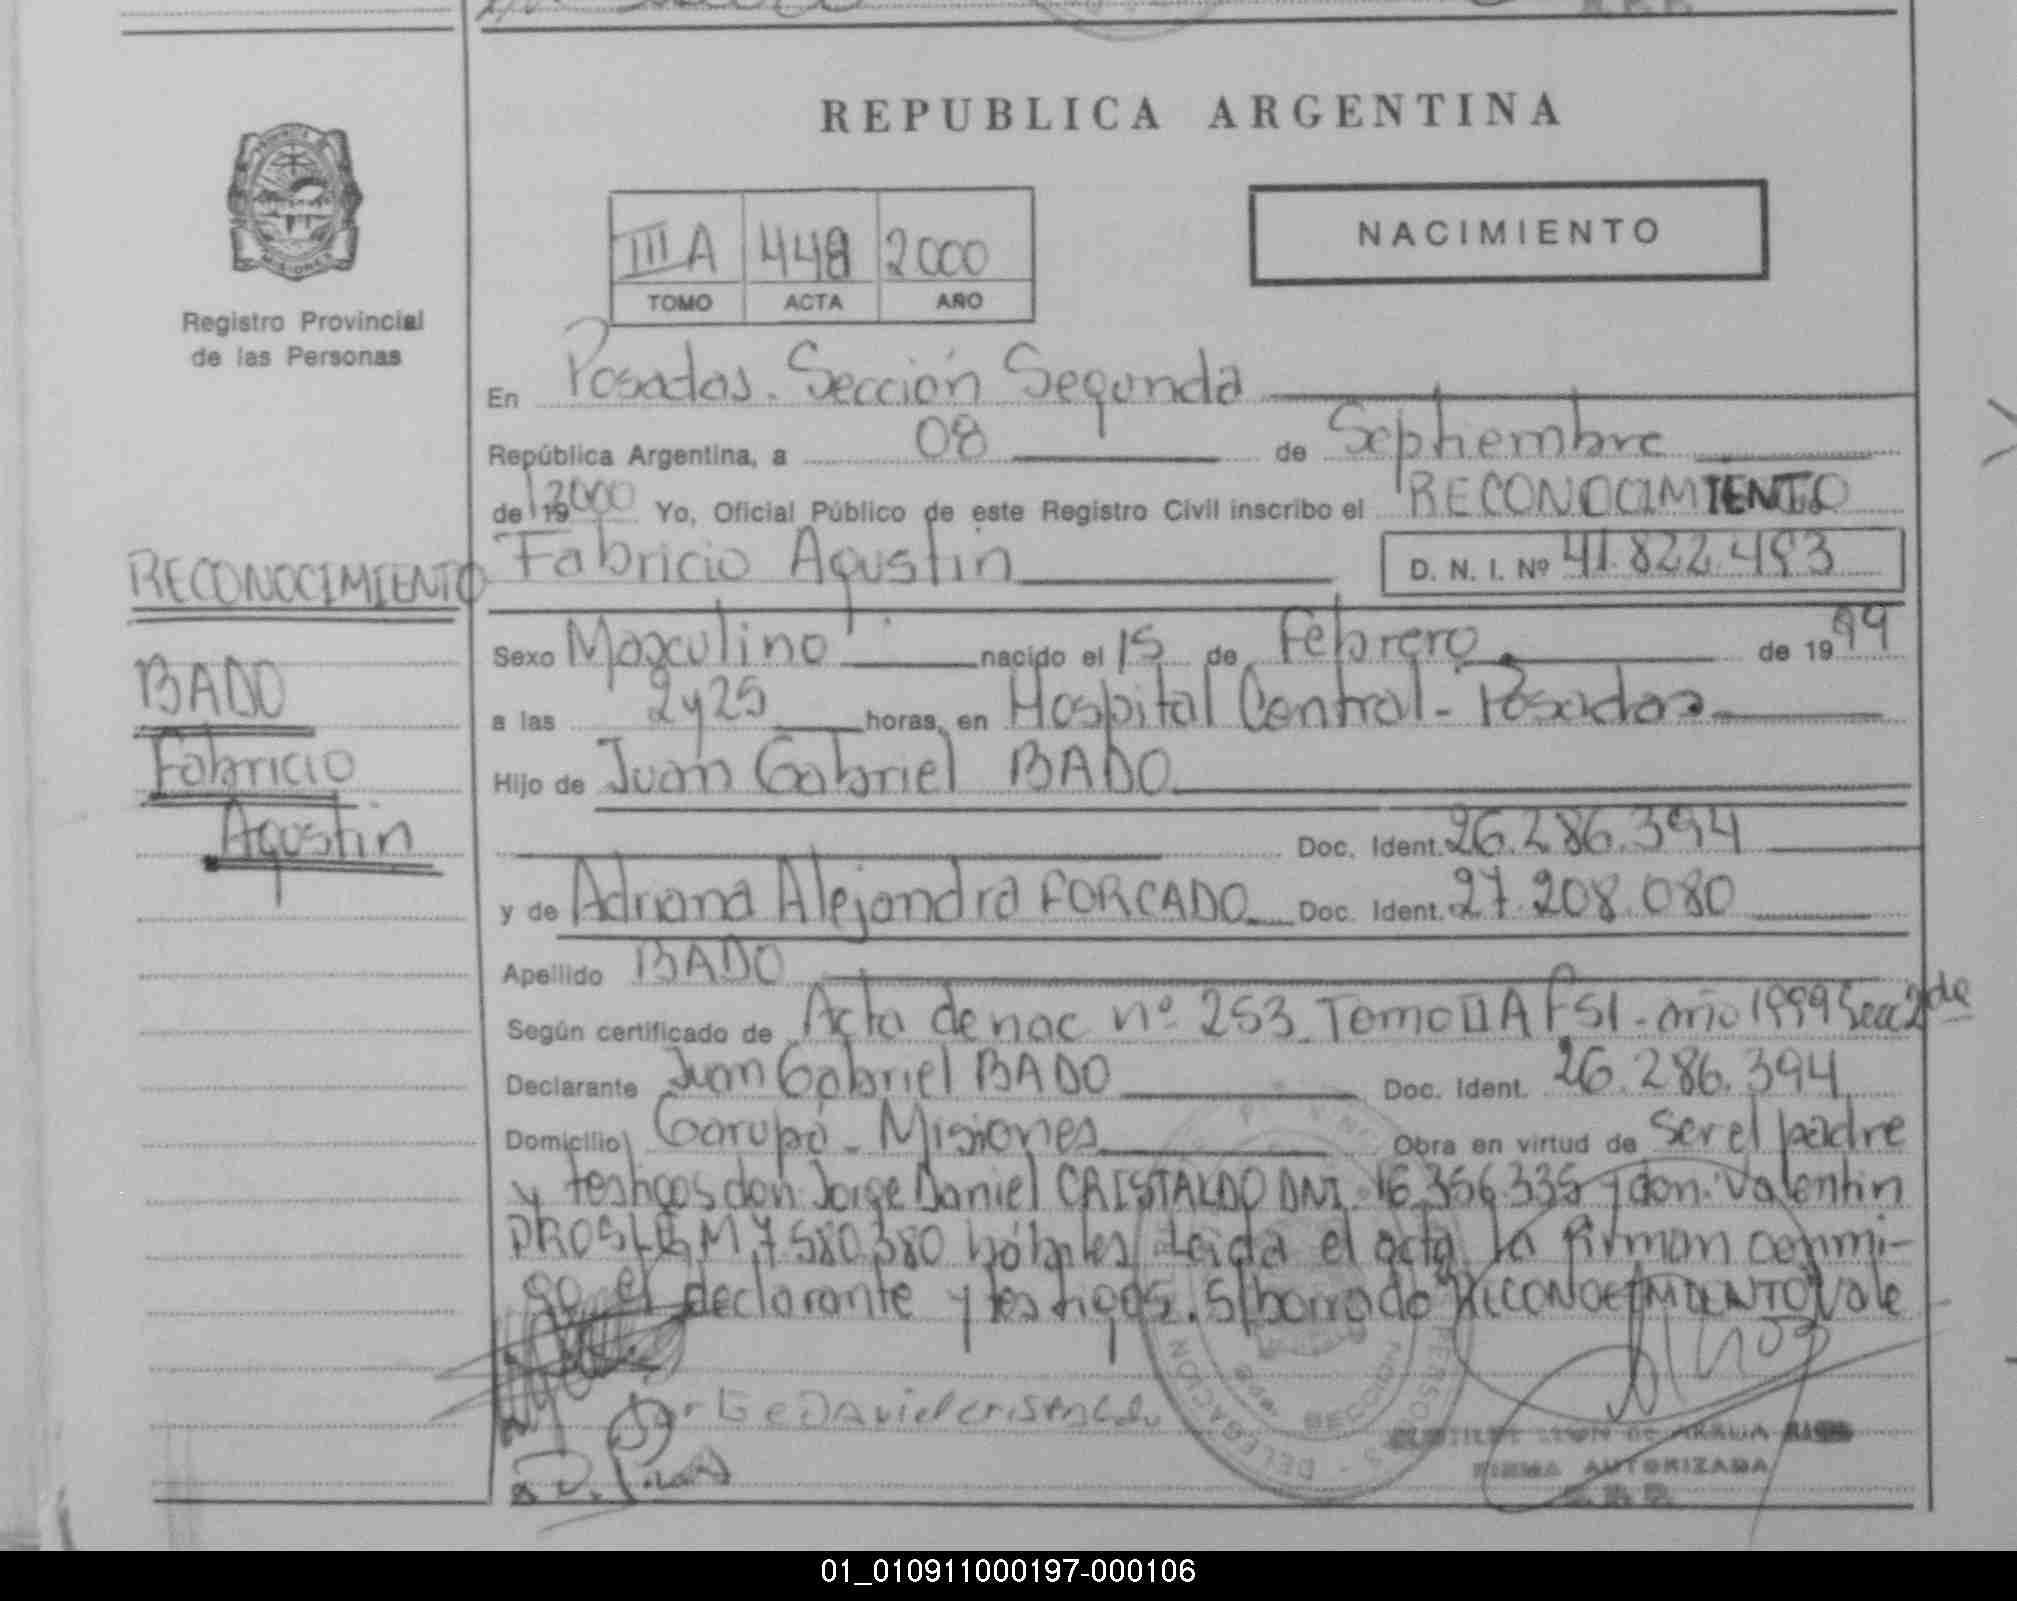 REPUBLICA ARGENTINA
NACIMIENTO
III A 448 2000
TOMO ACTA AÑO
Registro Provincial
de las Personas
En Posadas. Sección Segunda
República Argentina, a 08 de Septiembre
de 19 2000 Yo, Oficial Público de este Registro Civil inscribo el RECONOCIMIENTO
RECONOCIMIENTO
Fabricio Agustin D. N. I. Nº 41.822.493
BADO
Fabricio
Agustin
Sexo Masculino nacido el 15 de Febrero de 1999
a las 2y25 horas, en Hospital Central - Posadas
Hijo de Juan Gabriel BADO
Doc. Ident. 26.286.394
y de Adriana Alejandra FORCADO Doc. Ident. 27.208.080
Apellido BADO
Según certificado de Acta de nac nº 253 Tomo II A F51 - año 1999 Secc 2da
Declarante Juan Gabriel BADO Doc. Ident. 26.286.394
Domicilio Garupá - Misiones Obra en virtud de ser el padre
y testigos don Jorge Daniel CRISTALDO DNI. 16.356.335 y don Valentin
M 7.580.380 hábiles Leida el acta la firman conmi-
go el declarante y testigos. S/borrado "RECONOCIMIENTO" Vale
DELEGACION
SECCION
FIRMA AUTORIZADA
01_010911000197-000106